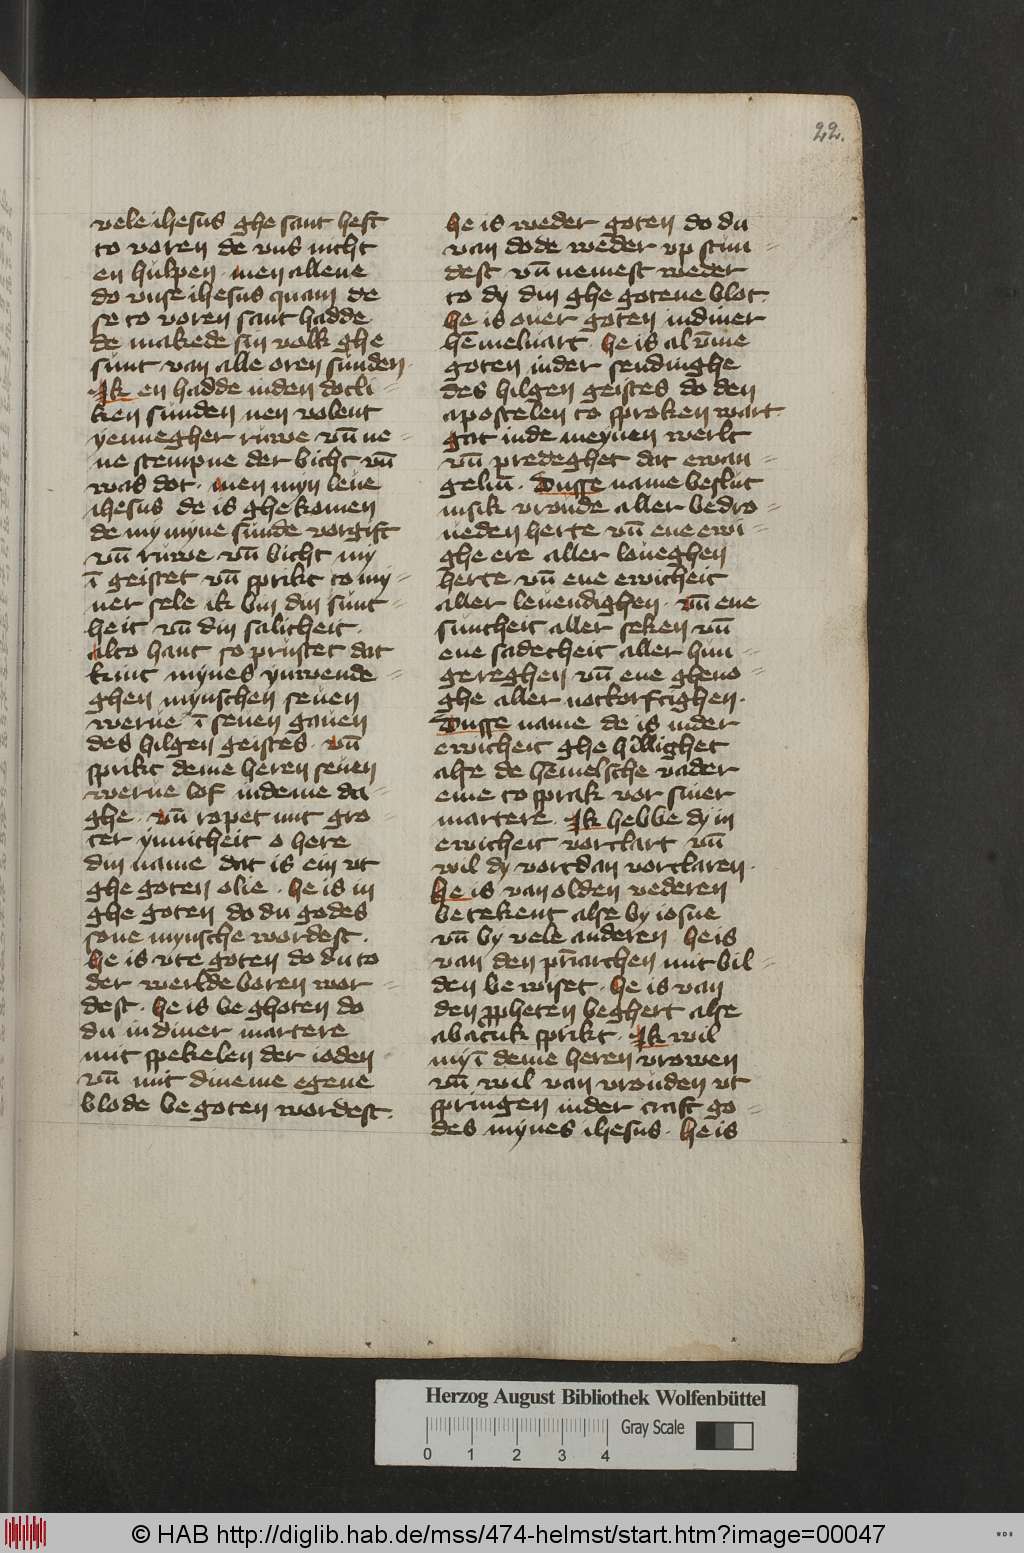 22.
vele ihesus ghe sant heft
to voren de vns nicht
en hulpen · men allene
do vnse ihesus quam de
se to voren sant hadde
de makede sin volk ghe
sunt van alle oren sunden ·
Ik en hadde in den dotli-
ken sunden nen volent
yennegher ruwe vn̄ ne-
ne stempne der bicht vn̄
was dot · men myn leue
ihesus de is ghekomen
de my myne sunde vorgift
vn̄ ruwe vn̄ bicht my
ī geistet vn̄ sprikt to my-
ner sele ik bin din sunt-
heit vn̄ din salicheit ·
alto hant so prustet dat
kint mynes ynwende-
ghen mynschen seuen
werue ī seuen gauen
des hilgen geistes · vn̄
sprikt deme heren seuen
werue lof in deme da-
ghe · vn̄ ropet mit gro-
ter ynnicheit o here
din name dat is ein vt
ghe goten olie · he is in
ghe goten do du godes
sone mynsche wordest ·
he is vte goten do du to
der werlde boren wor-
dest · he is beghoten do
du in diner martere
mit spekelen der ioden
vn̄ mit dineme egene
blode begoten wordest ·
he is weder goten do du
van dode weder vp stun-
dest vn̄ nemest weder
to dy din ghe gotene blot ·
he is ouer goten in diner
hēmeluart · he is al vmme
goten in der sendinghe
des hilgen geistes do den
apostelen to sproken wart
gat in de meynen werlt
vn̄ predeghet dat ewan-
geliū · Dusse name beslut
in sik vroude aller bedro-
ueden herte vn̄ ene ewi-
ghe ere aller loueghen
herte vn̄ ene ewicheit
aller leuendighen · vn̄ ene
suntheit aller seken vn̄
ene sadecheit aller hun-
gereghen vn̄ ene gheno-
ghe aller nottorftighen ·
Dusse name de is in der
ewicheit ghe hillighet
alse de hēmelsche vader
eme to sprak vor siner
martere · Ik hebbe dy in
ewicheit vorclart vn̄
wil dy vortdan vorclaren ·
he is van olden vederen
betekent alse by iosue
vn̄ by vele anderen · he is
van den pr̄iarchen mit bil-
den bewiset · he is van
den ꝓpheten beghert alse
abacuk sprikt · Ik wil
my ī deme heren vrowen
vn̄ wil van vrouden vt
springen in der craft go-
des mynes ihesus · he is
Herzog August Bibliothek Wolfenbüttel
0 1 2 3 4 Gray Scale
© HAB http://diglib.hab.de/mss/474-helmst/start.htm?image=00047
WDB